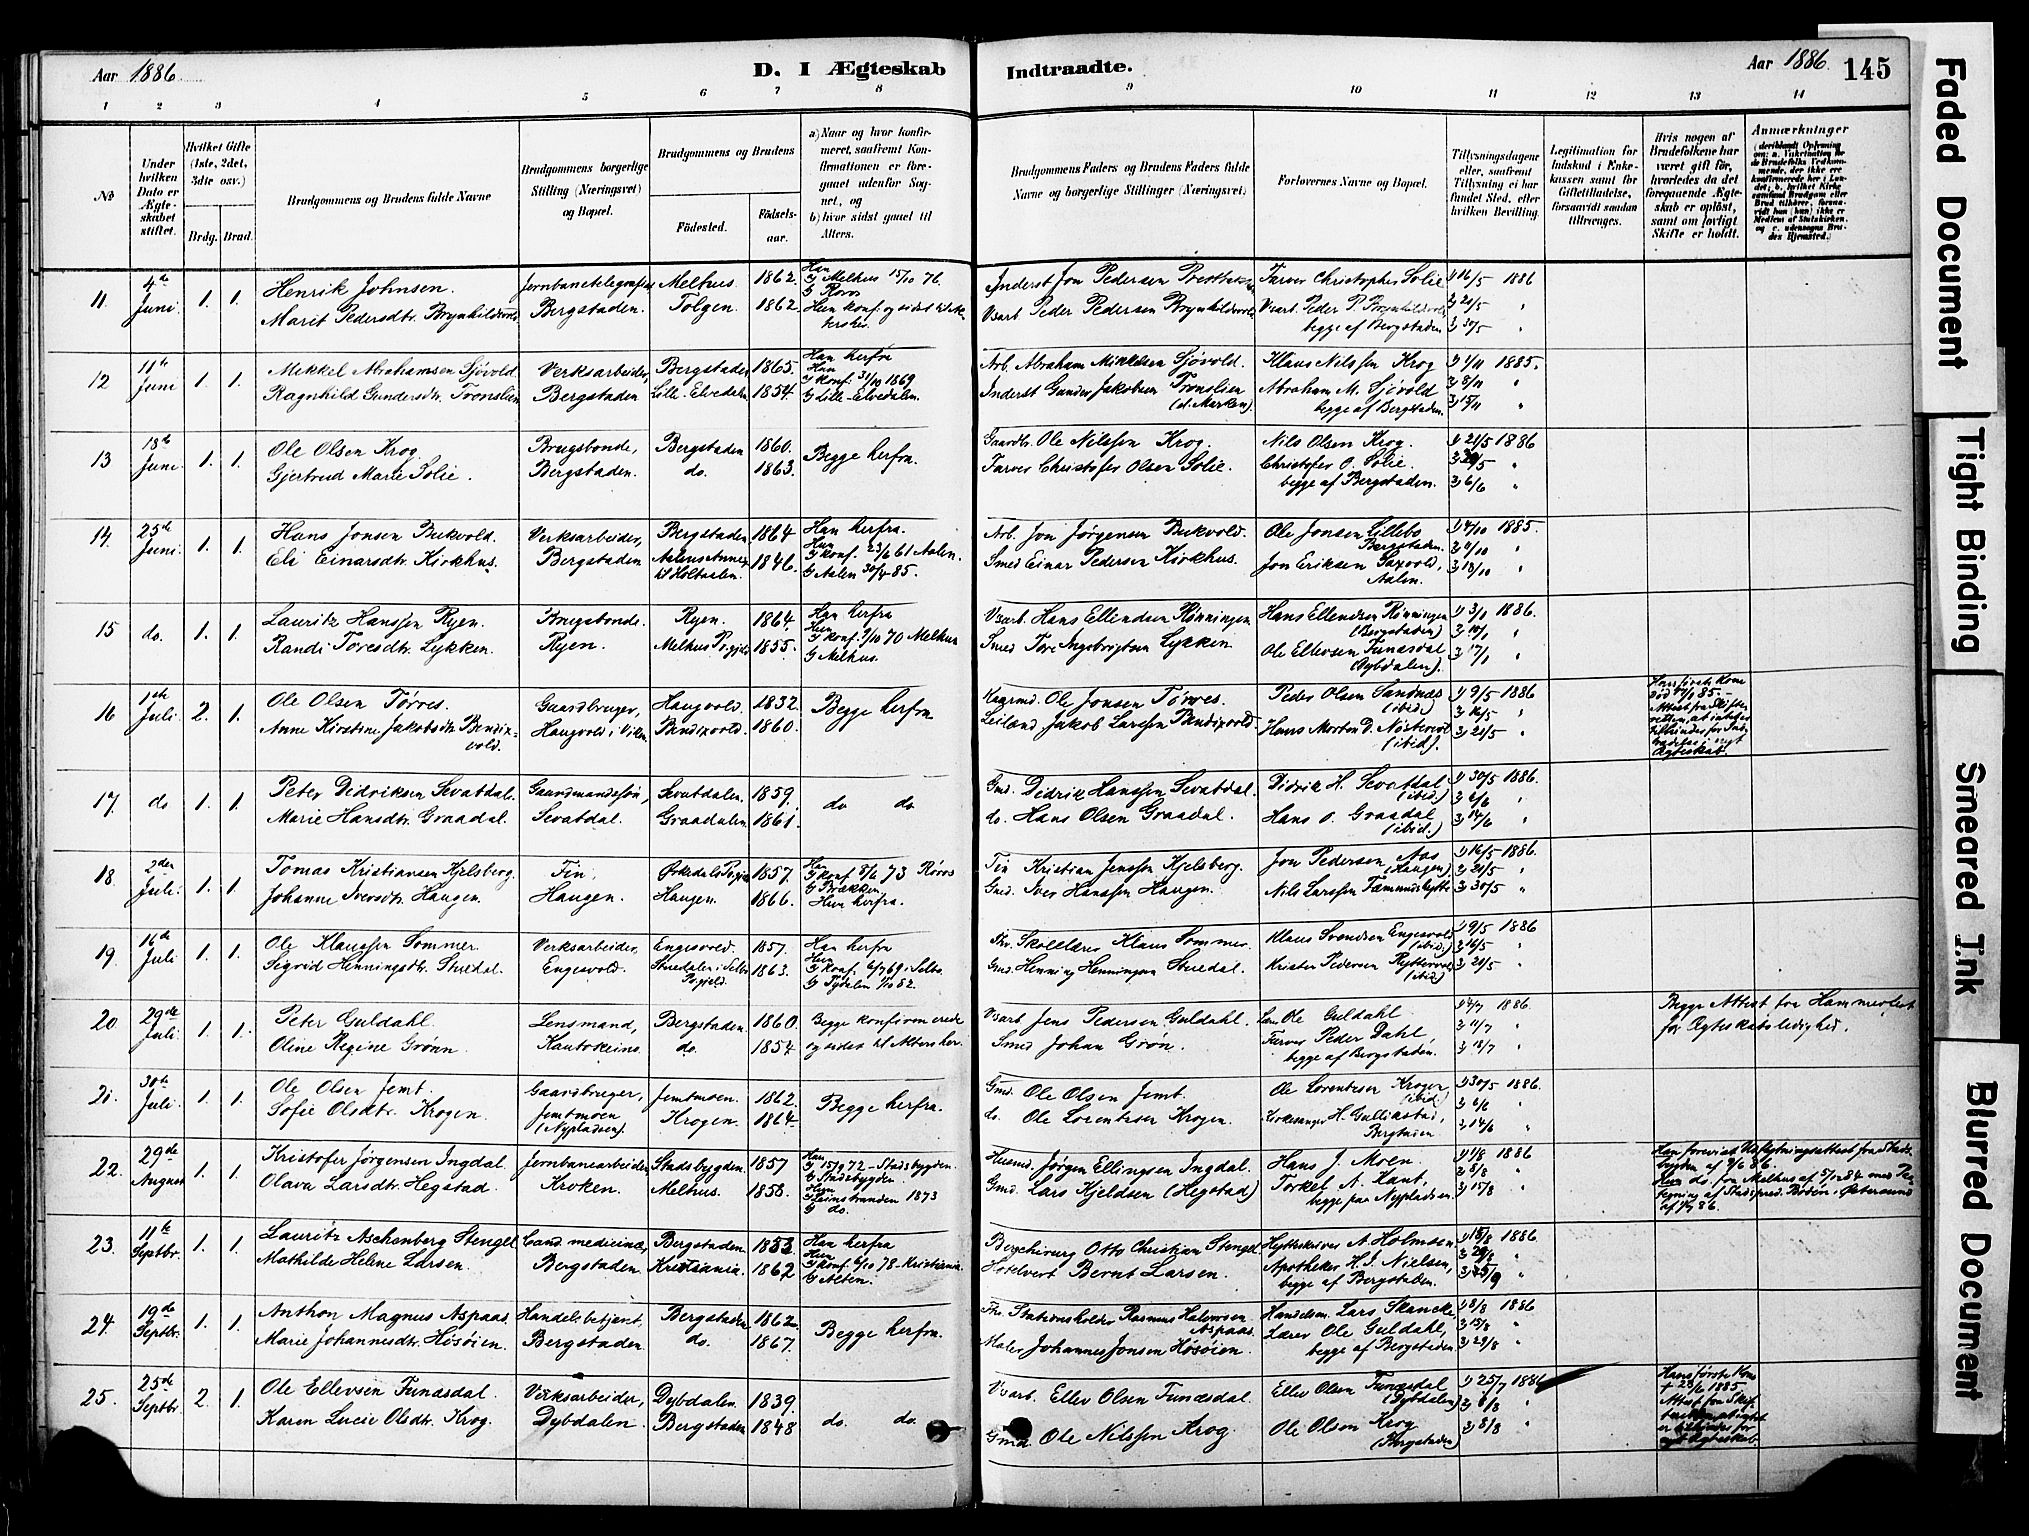 Aar 1886
D. I Ægteskab
Indtraadte.
Aar 1886.
145
1 2 3 4 5 6 7 8 9 10 11 12 13 14
No
Under hvilken Dato er Ægteskabet stiftet.
Hvilket Gifte (1ste, 2det, 3die osv.)
Brdg. Brud.
Brudgommens og Brudens fulde Navne
Brudgommens borgerlige Stilling (Næringsvei) og Bopæl.
Brudgommens og Brudens
Födested.
Födselsaar.
a) Naar og hvor konfirmeret, saafremt Konfirmationen er foregaaet udenfor Sognet, og
b) hvor sidst gaaet til Alters.
Brudgommens Faders og Brudens Faders fulde Navne og borgerlige Stillinger (Næringsvei)
Forlovernes Navne og Bopæl.
Tillysningsdagene eller, saafremt Tillysning ei har fundet Sted, efter hvilken Bevilling.
Legitimation for Indskud i Enkekassen samt for Giftetilladelse, forsaavidt saadan tiltrænges.
Hvis nogen af Brudefolkene har været gift för, hvorledes da det foregaaende Ægteskab er oplöst, samt om lovligt Skifte er holdt.
Anmærkninger
11 4de Juni 1. 1. Henrik Johnsen. Jernbanetelegrafist Melhus. 1862. Han Melhus 15/10 76. Røros
Marit Pedersdtr. Brynhildsvold Bergstaden. Tolgen. 1862. Hun konf. og sidst
Inderst Jon Pedersen Farver Christopher Solie 1) 16/5 1886
Vsarb. Peder Pedersen Brynhildsvold Vsarb. Peder P. Brynhildsvold begge af Bergstaden 3) 30/5 "
12 11te Juni 1. 1. Mikkel Abrahamsen Sjövold. Verksarbeider, Bergstaden 1865. Han herfra
Ragnhild Gundersdtr. Tronslien Bergstaden Lille-Elvedalen 1854. konf. 31/10 1869 Lille-Elvedalen.
Arb. Abraham Mikkelsen Sjövold. Klaus Nilssen Krog 1) 1/11 1885.
Inderst Gunder Jakobsen Tronslien Abraham M. Sjövold 2) 8/11 "
begge af Bergstaden. 3) 15/11 "
13 18de Juni 1. 1. Ole Olsen Krog. Brugsbonde, Bergstaden 1860. Begge herfra.
Gjertrud Marie Solie. Bergstaden. do. 1863.
Gaardbr. Ole Nilssen Krog. Nils Olsen Krog. 1) 21/5 1886
Farver Christofer Olsen Solie. Christofer O. Solie. begge af Bergstaden. 3) 6/6 "
14. 25de Juni. 1. 1. Hans Jonsen Bukvold. Verksarbeider, Bergstaden 1864 Han herfra.
Eli Einarsdtr. Kirkhus. Bergstaden Aalens Annex til Holtaalen. 1846. Hun konf. 23/6 61 Aalen. Aalen 30/4 85.
Arb. Jon Jørgensen Bukvold. Ole Jonsen Lillebo Bergstaden. 1) 4/10 1885.
Smed Einar Pedersen Kirkhus. Jon Eriksen Saxvold, Aalen. 3) 18/10 "
15 do. 1. 1. Lauritz Hanssen Ryen. Brugsbonde. Ryen. 1864. Han herfra
Randi Toresdtr. Lykken. Ryen. Melhus Pr.gjeld 1855. Hun konf. 9/10 70 Melhus Melhus.
Vsarb. Hans Ellendsen Rönningen Hans Ellendsen Rönningen (Bergstaden) 1) 3/1 1886. 2) 10/1 "
Smed Tore Ingebrigtsen Lykken Ole Ellevsen Funæsdal (Dybdalen). 3) 17/1 "
16 1ste Juli. 2. 1. Ole Olsen Törres. Gaardbruger, Haugvold. 1832. Begge herfra
Anne Kirstine Jakobsdtr. Bendixvold. Haugvold i Viken. Bendixvold. 1860.
Ole Jonsen Törres. Peder Olsen Sandnæs (ibid.) 1) 9/5 1886 2) 16/5 "
Leilænd. Jakob Larssen Bendixvold. Hans Morten D. Nöstervold (ibid). 3) 21/5 "
Hans förste Kone död 85. Attest fra Skifteretten, at intet er tilhinder for Indtrædelse i nyt Ægteskab.
17. do 1. 1. Peter Didriksen Sevatdal. Gaardmandssön, Sevatdalen. 1859. do do
Marie Hansdtr. Graadal. Sevatdal. Graadalen 1861.
Gmd. Didrik Hanssen Sevatdal. Didrik H. Sevatdal (ibid.) 1) 30/5 1886. 2) 6/6 "
do. Hans Olsen Graadal. Hans O. Graadal (ibid.) 3) 14/6 "
18. 2den Juli. 1. 1. Tomas Kristiansen Kjelsberg. Fin, Orkedals Pr.gjeld 1857. Han konf. 73 Röros Brækken.
Johanne Iversdtr. Haugen. Haugen. Haugen. 1866. Hun herfra.
Fin Kristian Jenssen Kjelsberg. Jon Pedersen Aas (Haugen) 1) 16/5 1886. 2) 21/5 "
Gmd. Iver Hanssen Haugen. Nils Larssen Fæmundshytte 3) 30/5 "
19. 16de Juli 1. 1. Ole Klaussen Sommer. Verksarbeider, Engesvold. 1857. Han herfra
Sigrid Henningsdtr. Stuedal. Engesvold. Stuedalen i Selbo Pr.gjeld. 1863. Hun konf. Selbo. Tydalen
Skolelærer Klaus Sommer. Klaus Svendsen Engesvold (ibid.) 1) 9/5 1886 2) 16/5 "
Gmd. Henning Henningsen Stuedal. Krister Pedersen Ryttervold (ibid.) 3) 21/5 "
20 29de Juli 1. 1. Peter Guldahl. Lensmand, Bergstaden. 1860. Begge konfirmerede
Oline Regine Grønn. Kautokeino. do. 1854. og sidst til Alters her.
Vsarb. Jens Pedersen Guldahl. Lær. Ole Guldahl 1) 4/7 1886 2) 11/7 "
Smed Johan Grön. Farver Peder Dahl, begge af Bergstaden. 3) 18/7 "
Begge Attest fra Hammerfest for Ægteskabsledighed.
21. 30te Juli. 1. 1. Ole Olsen Jemt. Gaardbruger, Jemtmoen. 1862. Begge herfra.
Sofie Olsdtr. Krogen. Jemtmoen (Nypladsen). Krogen. 1864.
Gmd. Ole Olsen Jemt. Ole Lorentzsen Krogen (ibid) 1) 30/5 1886. 2) 6/6 "
do. Ole Lorentzsen Krogen. Kirkesanger H. Gullikstad, Bergstaden 3) 14/6 "
22. 29de August 1. 1. Kristofer Jørgensen Ingdal. Jernbanearbeider Stadsbygden. 1857 Han 15/9 72 - Stadsbygden. Stadsbygden.
Olava Larsdtr. Hegstad. Kroken. Melhus. 1858. Hun Leinstranden 1873 do.
Husmd. Jörgen Ellingsen Ingdal. Hans J. Moen. 1) 1/8 1886 2) 8/8 "
Gmd. Lars Kjeldsen (Hegstad) Torkel A. Kant, begge paa Nypladsen. 3) 15/8 "
Han forevist Udflytningsattest fra Stadsbygden af 9/6 86. Hun do. fra Melhus af 84 med Paategning af Stadspred. Bodén i Östersund
23. 11te Septbr. 1. 1. Lauritz Aschenberg Stengel Cand. medicinæ, Bergstaden 1853. Han herfra
Mathilde Helene Larsen. Bergstaden. Kristiania. 1862 Hun konf. 6/10 78 - Kristiania. Alten.
Bergchirurg Otto Christian Stengel. Hytteskriver A. Holmsen 1) 15/8 1886.
Hotelvert Bernt Larsen. Apotheker H. J. Nielsen, begge af Bergstaden.
24. 19de Septbr. 1. 1. Anthon Magnus Aspaas. Handelsbetjent, Bergstaden 1862. Begge herfra.
Marie Johannesdtr. Hösöien. Bergstaden. do. 1867.
Stationsholder Rasmus Halvorsen Aspaas. Handelsm. Lars Skancke, 1) 8/8 1886 2) 15/8 "
Maler Johannes Jonsen Hösöien. Lærer Ole Guldahl, begge af Bergstaden 3) 29/8 "
25. 25de Septbr. 2. 1. Ole Ellevsen Funæsdal. Verksarbeider, Dybdalen. 1839. do. do.
Karen Lucie Olsdtr. Krog. Dybdalen. Bergstaden 1848
Vsarb. Ellev Olsen Funæsdal. Ellev Olsen Funæsdal (Dybdalen) 1) 25/7 1886
Gmd Ole Nilssen Krog. Ole Olsen Krog (Bergstaden) 3) 8/8 "
Hans förste Kone † 23/6 1885.
Faded Document
Tight Binding
Smeared Ink
Blurred Document